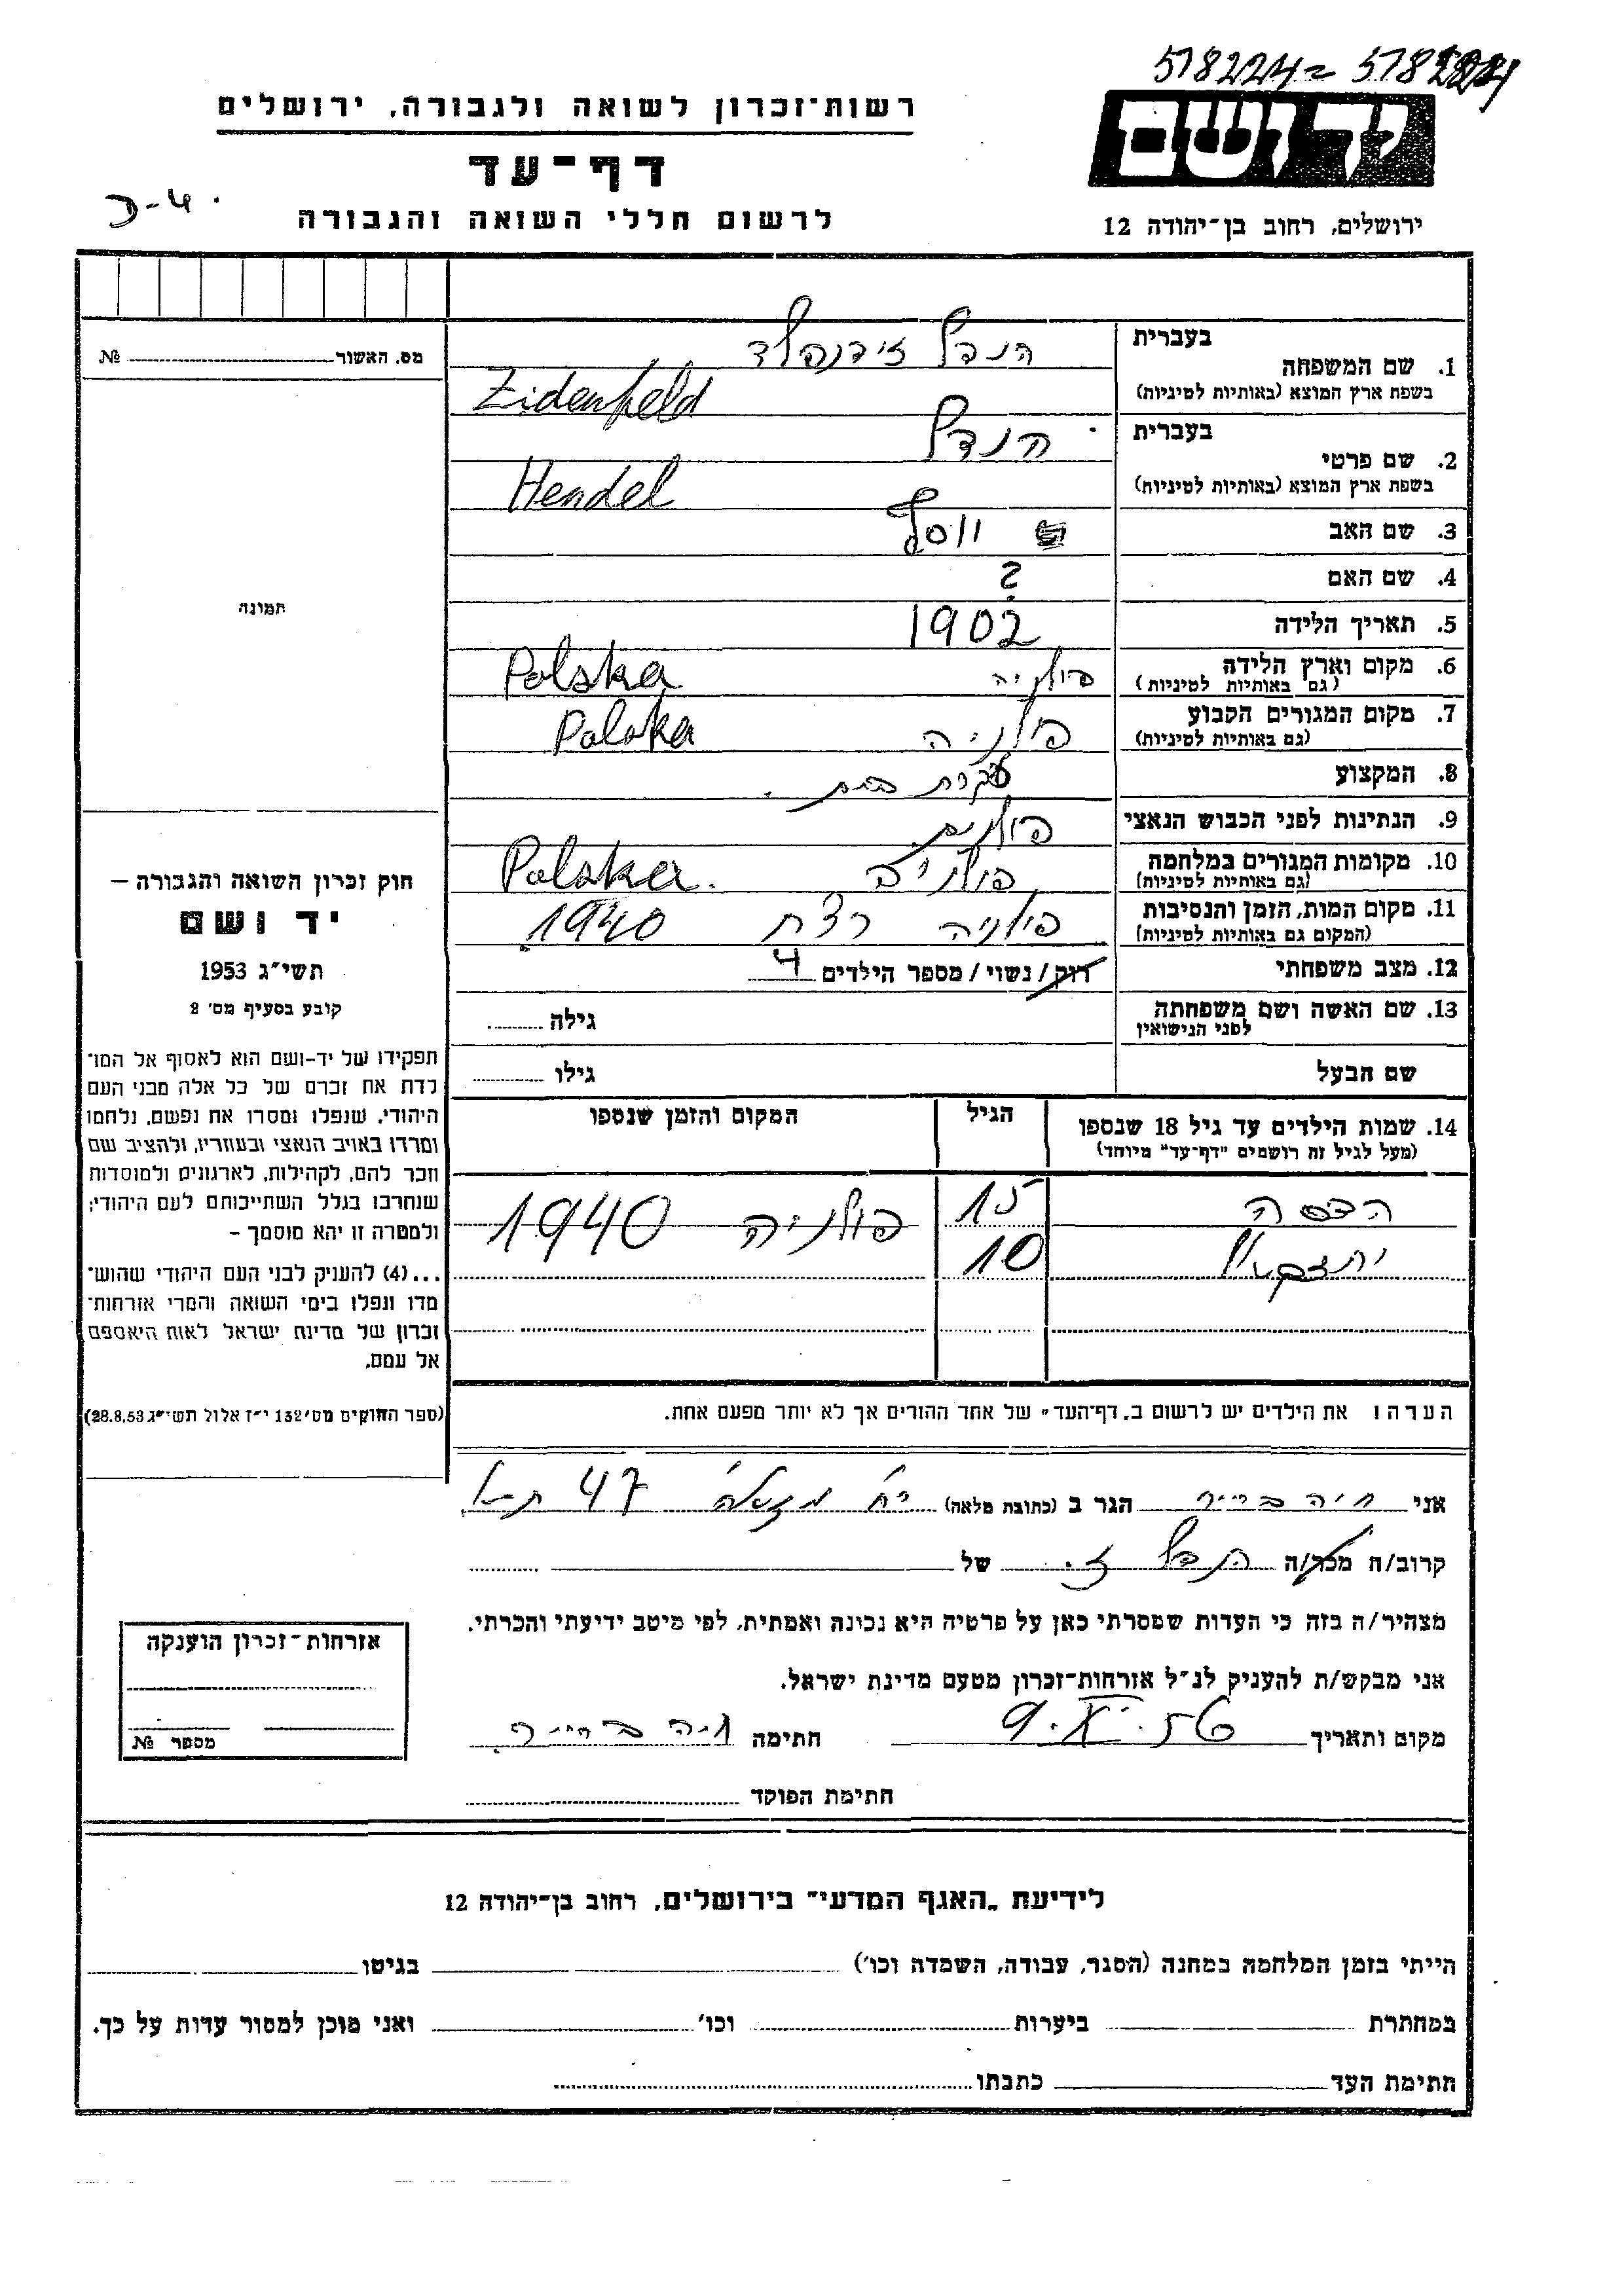 578224 = 578224
ידושם
ירושלים, רחוב בן־יהודה 12
רשות־זכרון לשואה ולגבורה, ירושלים
דף־עד
לרשום חללי השואה והגבורה
מס. האשור № 
תמונה
בעברית
הנדל זידנפלד
1. שם המשפחה
בשפת ארץ המוצא (באותיות לטיניות)
Zidenfeld
בעברית
הנדל
2. שם פרטי
בשפת ארץ המוצא (באותיות לטיניות)
Hendel
3. שם האב יוסף
4. שם האם ?
5. תאריך הלידה 1902
6. מקום וארץ הלידה פולניה Polska
(גם באותיות לטיניות)
7. מקום המגורים הקבוע פולניה Polska
(גם באותיות לטיניות)
8. המקצוע עקרת בית.
9. הנתינות לפני הכבוש הנאצי פולנים
10. מקומות המגורים במלחמה פולניה Polska.
(גם באותיות לטיניות)
11. מקום המות, הזמן והנסיבות פולניה רצח 1940
(המקום גם באותיות לטיניות)
12. מצב משפחתי רוק / נשוי / מספר הילדים 4
13. שם האשה ושם משפחתה גילה
לפני הנישואין
שם הבעל גילו
14. שמות הילדים עד גיל 18 שנספו הגיל המקום והזמן שנספו
(מעל לגיל זה רושמים "דף־עד" מיוחד)
הדסה 15 פולניה 1940
יחזקאל 10
הערה: את הילדים יש לרשום ב„דף־העד" של אחד ההורים אך לא יותר מפעם אחת.
חוק זכרון השואה והגבורה –
יד ושם
תשי"ג 1953
קובע בסעיף מס' 2
תפקידו של יד-ושם הוא לאסוף אל המו־
לדת את זכרם של כל אלה מבני העם
היהודי, שנפלו ומסרו את נפשם, נלחמו
ומרדו באויב הנאצי ובעוזריו, ולהציב שם
וזכר להם, לקהילות, לארגונים ולמוסדות
שנחרבו בגלל השתייכותם לעם היהודי;
ולמטרה זו יהא מוסמך –
...(4) להעניק לבני העם היהודי שהוש־
מדו ונפלו בימי השואה והמרי אזרחות־
זכרון של מדינת ישראל לאות היאספם
אל עמם.
(ספר החוקים מס' 132 י"ז אלול תשי"ג 28.8.53)
אני חיה הגר ב (כתובת מלאה) 47 ת-א
קרוב/ה מכר/ה הנדל ז. של
מצהיר/ה בזה כי העדות שמסרתי כאן על פרטיה היא נכונה ואמתית, לפי מיטב ידיעתי והכרתי.
אני מבקש/ת להעניק לנ"ל אזרחות־זכרון מטעם מדינת ישראל.
מקום ותאריך 9. 56 חתימה חיה
חתימת הפוקד
אזרחות־זכרון הוענקה
מספר №
לידיעת „האגף המדעי" בירושלים, רחוב בן־יהודה 12
הייתי בזמן המלחמה במחנה (הסגר, עבודה, השמדה וכו') בגיטו
במחתרת ביערות וכו' ואני מוכן למסור עדות על כך.
חתימת העד כתבתו